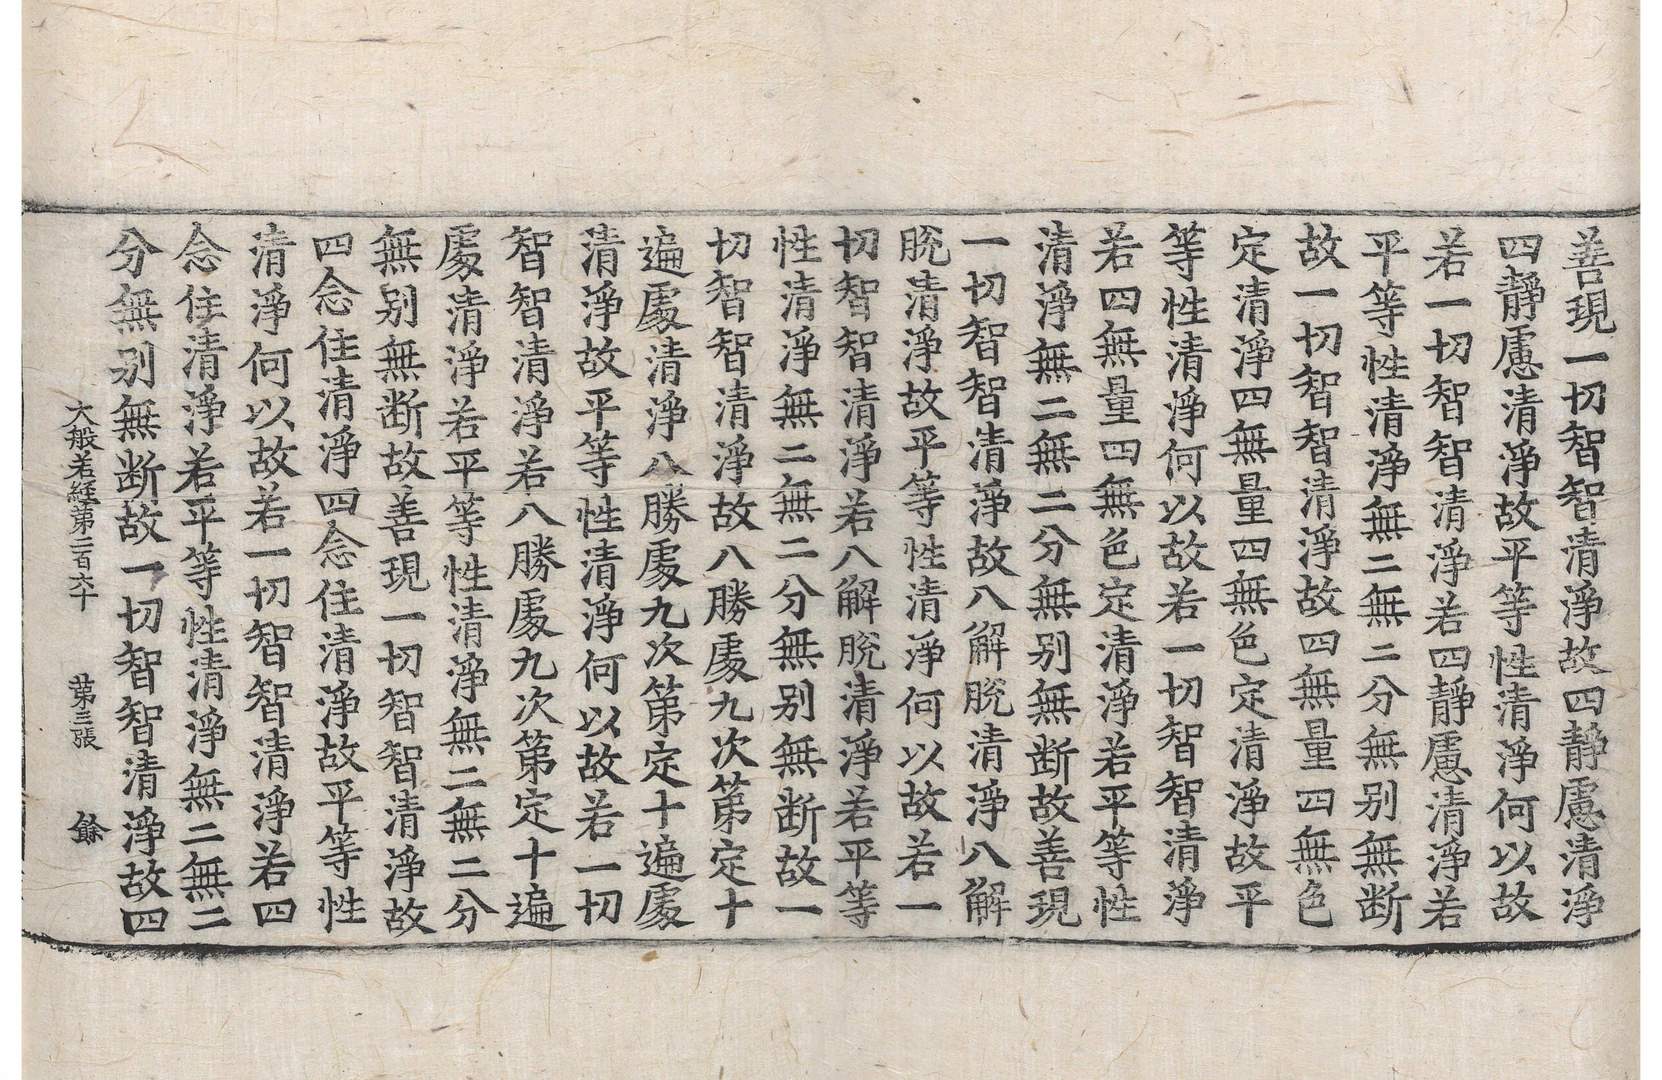 善現一切智智清淨故四靜慮清淨
四靜慮清淨故平等性清淨何以故
若一切智智清淨若四靜慮清淨若
平等性清淨無二無二分無別無断
故一切智智清淨故四無量四無色
定清淨四無量四無色定清淨故平
等性清淨何以故若一切智智清淨
若四無量四無色定清淨若平等性
清淨無二無二分無別無断故善現
一切智智清淨故八解脫清淨八解
脫清淨故平等性清淨何以故若一
切智智清淨若八解脫清淨若平等
性清淨無二無二分無別無断故一
切智智清淨故八勝處九次第定十
遍處清淨八勝處九次第定十遍處
清淨故平等性清淨何以故若一切
智智清淨若八勝處九次第定十遍
處清淨若平等性清淨無二無二分
無別無断故善現一切智智清淨故
四念住清淨四念住清淨故平等性
清淨何以故若一切智智清淨若四
念住清淨若平等性清淨無二無二
分無別無断故一切智智清淨故四
大般若経第二百六十 第三張 餘